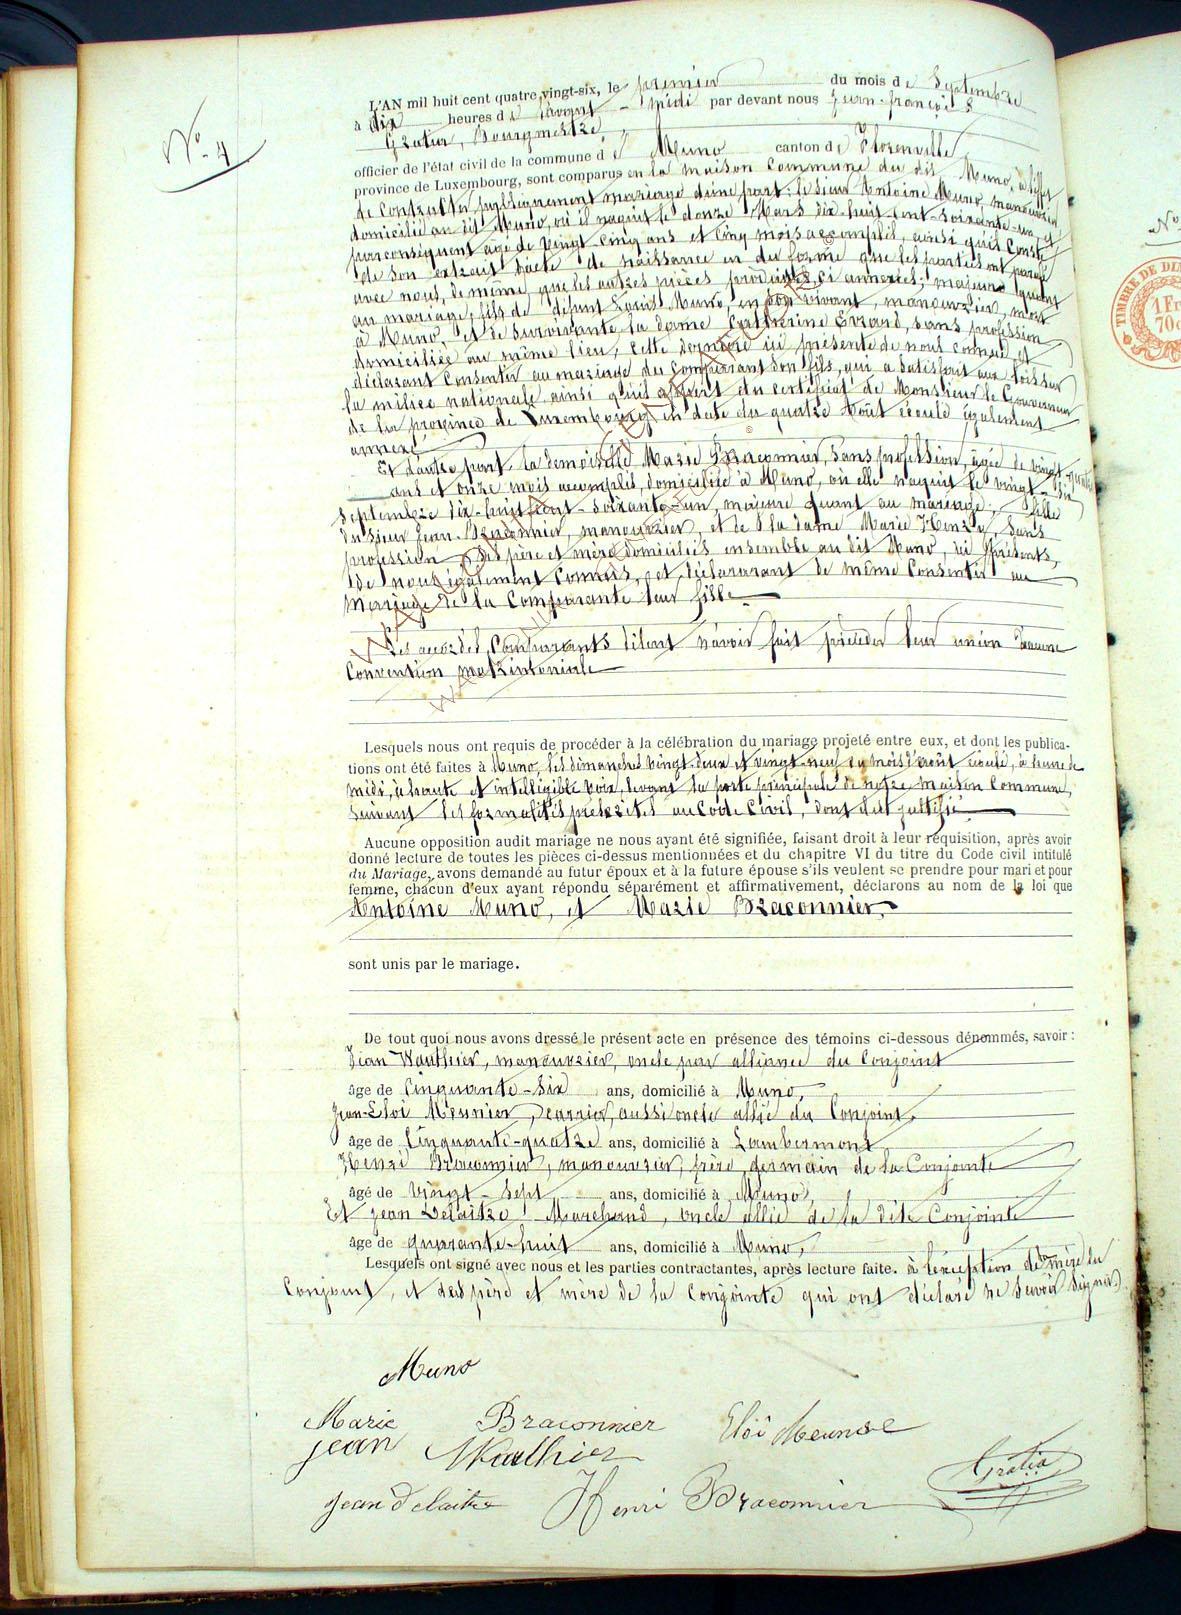 No 4
L'AN mil huit cent quatre vingt-six, le premier du mois de Septembre
à dix heures de avant-midi par devant nous Jean-françois
Gratia, Bourgmestre
officier de l'état civil de la commune de Muno canton de Florenville
province de Luxembourg, sont comparus en la maison Commune du dit Muno, à l'effet
de Contracter publiquement mariage d'une part: le sieur Antoine Muno, manouvrier
domicilié au dit Muno, où il naquit le donze Mars dix-huit cent-soixante-un, et
par conséquent âgé de vingt cinq ans et cinq mois accomplis, ainsi qu'il Conste
de son extrait d'acte de naissance en due forme que les parties ont paraphé
avec nous, de même que les autres pièces produites, ci annexées; majeur quant
au mariage, fils de défunt Louis Muno, en son vivant, manouvrier, mort
à Muno, et de survivante la dame Catherine Evrard, sans profession
domiciliée au même lieu, cette dernière ici présente de nous connue et
déclarant Consentir au mariage du comparant son fils, qui a satisfait aux lois sur
la milice nationale, ainsi qu'il appert du certificat de Monsieur le Gouverneur
de la province de Luxembourg en date du quatre Août écoulé également
annexé
Et d'autre part la demoiselle Marie Braconnier, Sans profession, âgée de vingt-quatre
ans et onze mois accomplis, domiciliée à Muno, où elle naquit le vingt-six
septembre dix-huit cent-soixante-un, majeure quant au mariage, fille
du sieur Jean Braconnier, manouvrier, et de la dame Marie Henry, Sans
profession ses père et mère domiciliés ensemble au dit Muno, ici présents,
de nous également Connus, et déclararant de même Consentir au
Mariage de la Comparante leur fille
Les accordés Comparants disent n'avoir fait précéder leur union d'aucune
Convention matrimoniale
Lesquels nous ont requis de procéder à la célébration du mariage projeté entre eux, et dont les publica-
tions ont été faites à Muno, les dimanches vingt-deux et vingt-neuf du mois d'août écoulé, à heure de
midi, à haute et intelligible voix, devant la porte principale de notre maison Commune,
suivant les formalités préscrites au Code Civil, dont dû justifié
Aucune opposition audit mariage ne nous ayant été signifiée, faisant droit à leur réquisition, après avoir
donné lecture de toutes les pièces ci-dessus mentionnées et du chapitre VI du titre du Code civil intitulé
du Mariage, avons demandé au futur époux et à la future épouse s'ils veulent se prendre pour mari et pour
femme, chacun d'eux ayant répondu séparément et affirmativement, déclarons au nom de la loi que
Antoine Muno, et Marie Braconnier,
sont unis par le mariage.
De tout quoi nous avons dressé le présent acte en présence des témoins ci-dessous dénommés, savoir :
Jean Wauthier, manouvrier, oncle par alliance du Conjoint
âge de Cinquante-six ans, domicilié à Muno,
Jean-Eloi Meunier, carrier, aussi oncle allié du Conjoint,
âge de Cinquante-quatre ans, domicilié à Lambermont
Henri Braconnier, manouvrier, frère germain de la Conjointe
âgé de vingt-sept ans, domicilié à Muno,
Et Jean Delaitre, Marchand, oncle allié de la dite Conjointe
âge de quarante-huit ans, domicilié à Muno,
Lesquels ont signé avec nous et les parties contractantes, après lecture faite. à l'exception de mère du
Conjoint, et des père et mère de la Conjointe qui ont déclaré ne savoir signer.
Muno
Marie Braconnier Eloï Meunier
Jean Wauthier
Gratia
Jean Delaitre Henri Braconnier
TIMBRE DE DI
1 Fr
70c
No